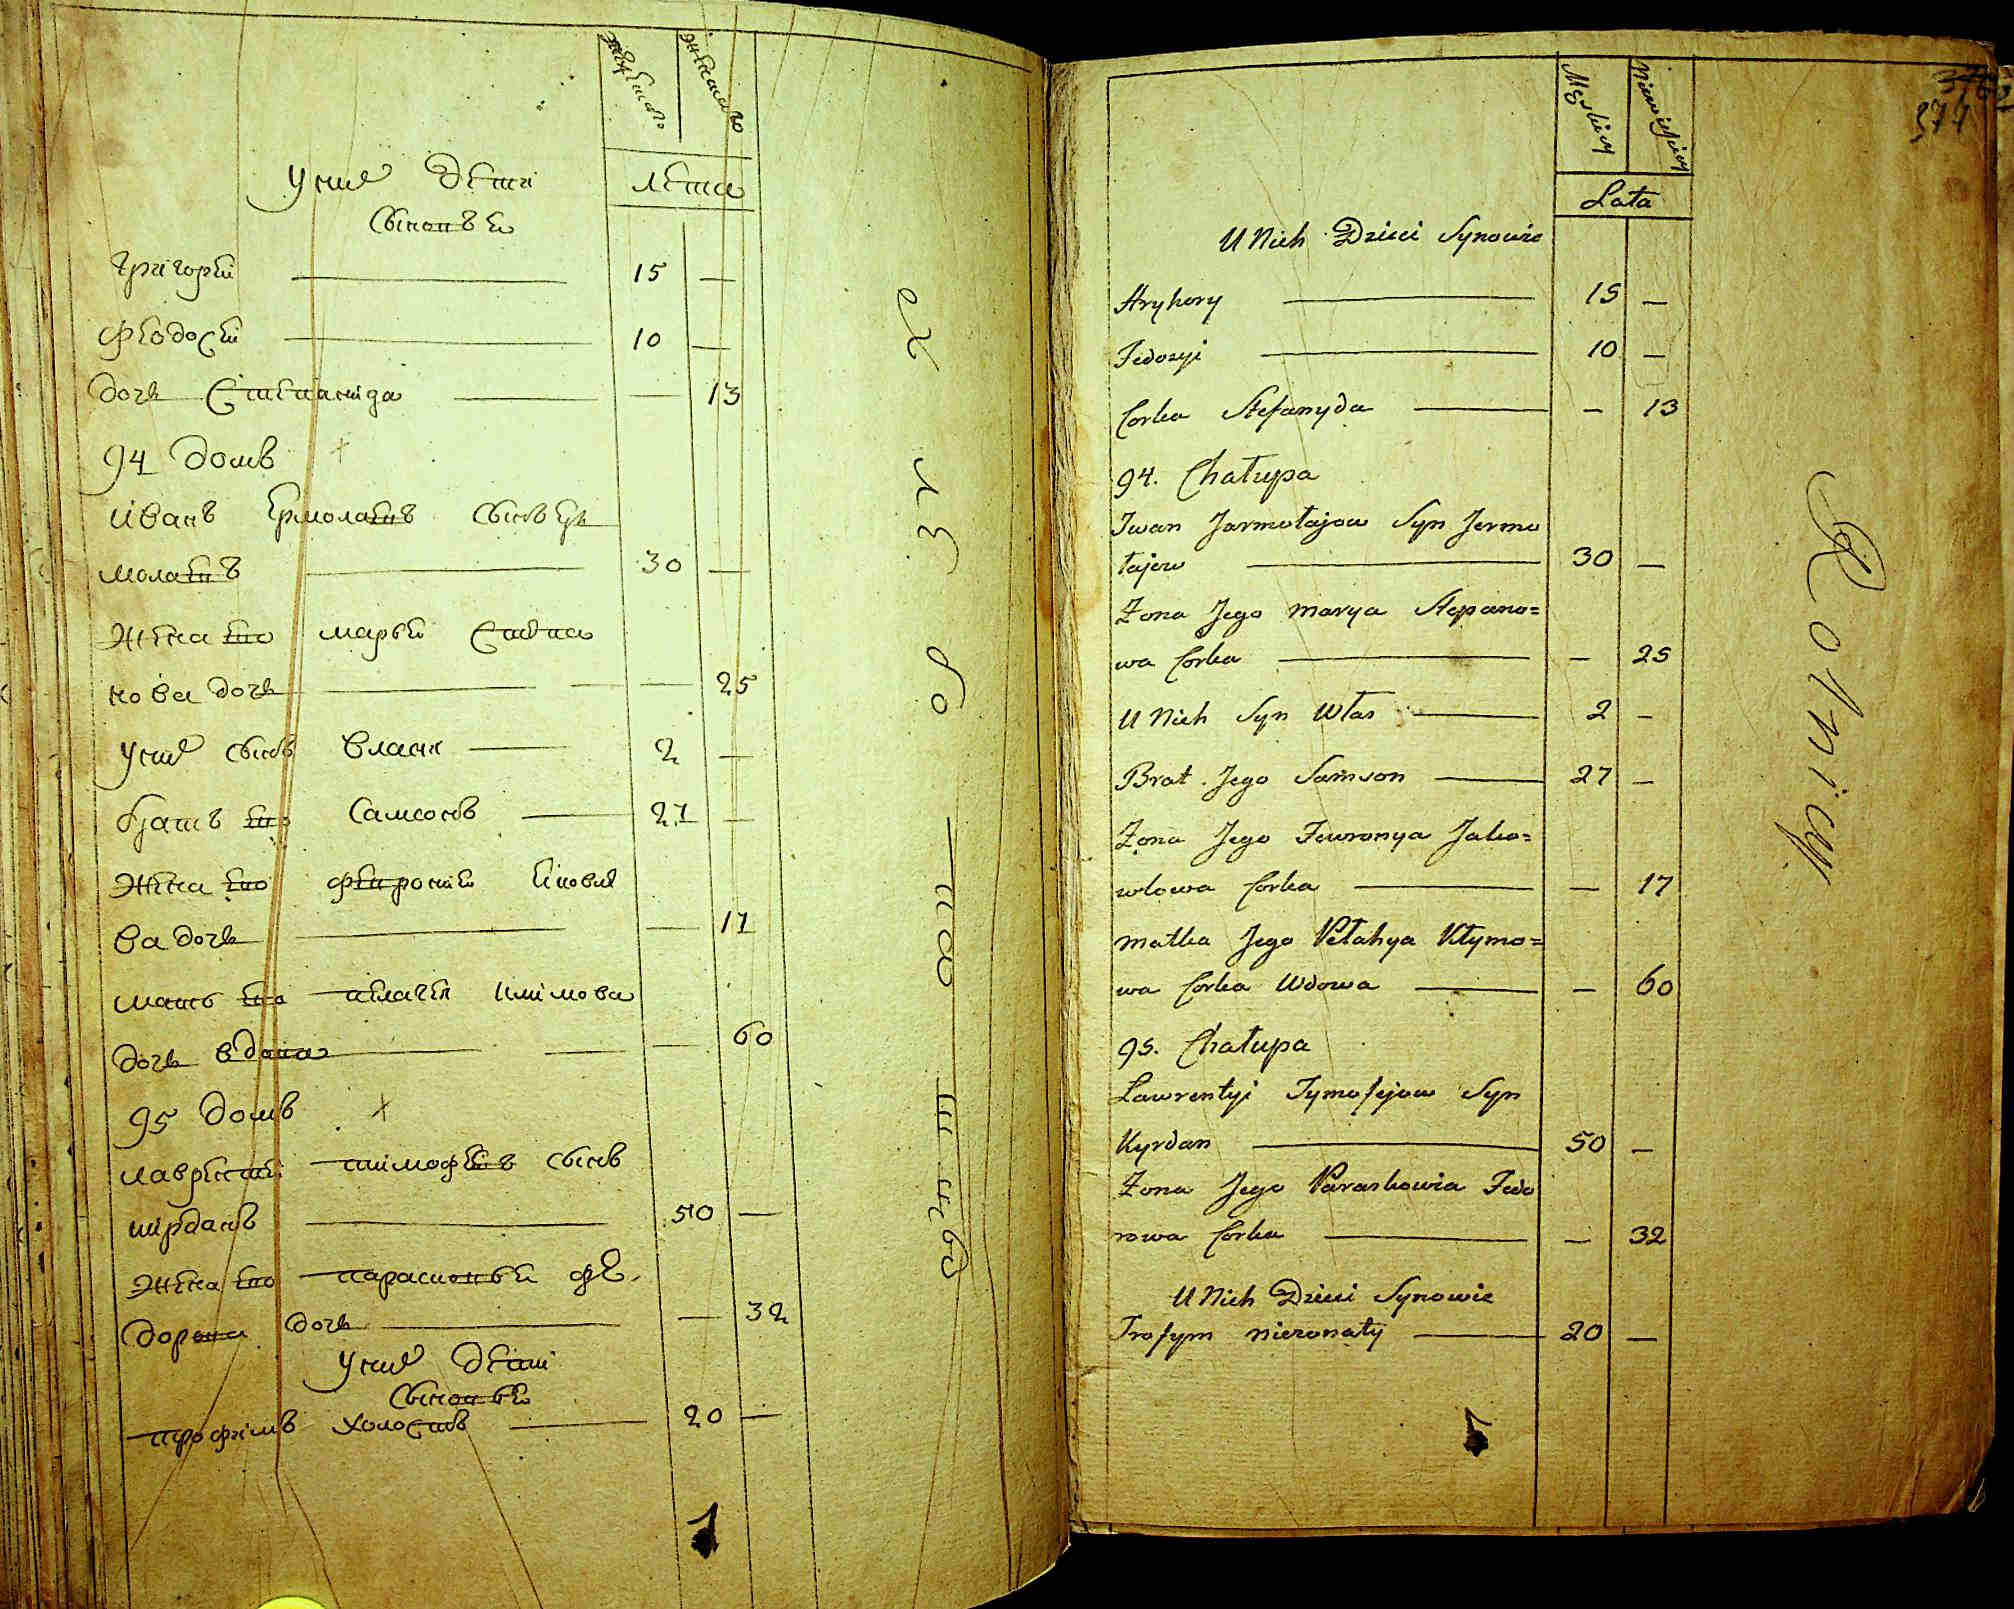 мужеска
женска
Лета
У них Дети
Сыновья
Григорей 15 —
Феодосей 10 —
Дочь Степанида — 13
94 Домъ
Иванъ Ермолаевъ Сынъ Ер
молаевъ 30 —
Жена его Марья Степа
нова Дочь — 25
У них сынъ Власъ 2 —
братъ его Самсонъ 27 —
Жена его Февронья Яковле
ва Дочь — 17
мать его Пелагея Климова
Дочь вдова — 60
95 Домъ
Лаврентей Тимофеевъ сынъ
Кирданъ 50 —
Жена его Парасковья Фе.
дорова Дочь — 32
У них Дети
Сыновья
Трофимъ холостъ 20 —
1
Męskiey
Niewieściey
Lata
U Nich Dzieci Synowie
Hryhory 15 —
Fedosyi 10 —
Corka Stefanyda — 13
94. Chałupa
Iwan Jarmołajow Syn Jermo
łajow 30 —
Żona Jego Marya Stepano=
wa Corka — 25
U Nich Syn Włas 2 —
Brat Jego Samson 27 —
Żona Jego Fewronya Jako=
wlowa Corka — 17
Matka Jego Pełahya Kłymo=
wa Corka Wdowa — 60
95. Chałupa
Lawrentyi Tymofejow Syn
Kyrdan 50 —
Żona Jego Paraskowia Fedo
rowa Corka — 32
U Nich Dzieci Synowie
Trofym nieżonaty 20 —
1
Rolnicy
374